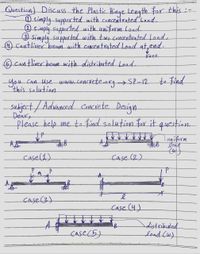 Question) Discuss the Plastic Hinge Length for this :-
① simply supported with concentrated Load.
② simply supported with uniform Load.
③ simply supported with two concentrated Load.
④ Cantilever beam with concentrated Load at end.
⑤ Cantilever beam with distributed Load.
You can use www.concrete.org → SP-12 to find
this solution
subject / Advanced Concrete Design
Dear,
Please help me to find solution for it question
P
A B
Case(1)
A B
uniform
Load
(w)
Case(2)
P P
A B
Case(3)
P
A
Case(4)
A B
distributed
Load (w)
Case(5)